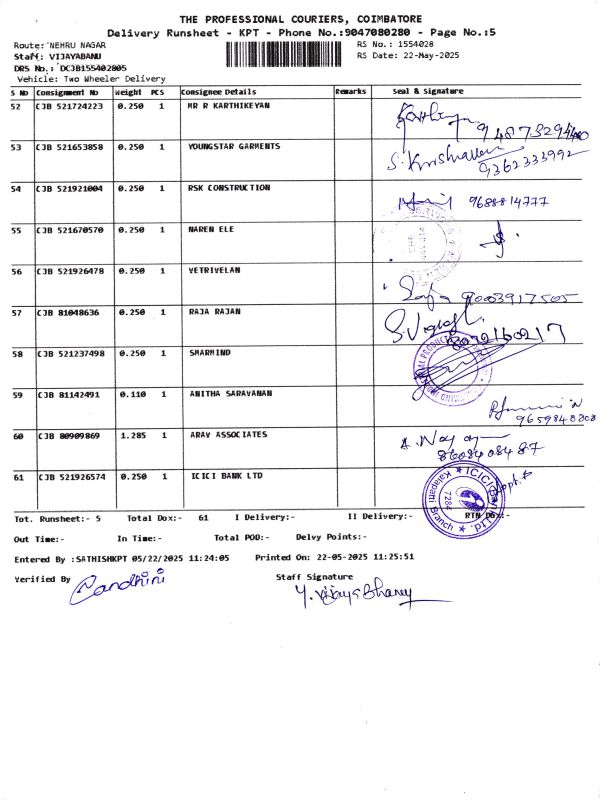 THE PROFESSIONAL COURIERS, COIMBATORE
Delivery Runsheet - KPT - Phone No.:9047080280 - Page No.:5
Route: NEHRU NAGAR RS No.: 1554028
Staff: VIJAYABANU RS Date: 22-May-2025
DRS No.: DCJB155402805
Vehicle: Two Wheeler Delivery
S No Consignment No Weight PCS Consignee Details Remarks Seal & Signature
52 CJB 521724223 0.250 1 MR R KARTHIKEYAN
53 CJB 521653858 0.250 1 YOUNGSTAR GARMENTS S. Krishnaveni 9362333992
54 CJB 521921004 0.250 1 RSK CONSTRUCTION 9688814777
55 CJB 521670570 0.250 1 NAREN ELE
56 CJB 521926478 0.250 1 VETRIVELAN
57 CJB 81048636 0.250 1 RAJA RAJAN
58 CJB 521237498 0.250 1 SMARMIND
59 CJB 81142491 0.110 1 ANITHA SARAVANAN
60 CJB 80909869 1.285 1 ARAV ASSOCIATES
61 CJB 521926574 0.250 1 ICICI BANK LTD
ICICI Bank Ltd. Kalapatti Branch 7284
Tot. Runsheet:- 5 Total Dox:- 61 I Delivery:- II Delivery:- RTN Dox:-
Out Time:- In Time:- Total POD:- Delvy Points:-
Entered By :SATHISHKPT 05/22/2025 11:24:05 Printed On: 22-05-2025 11:25:51
Verified By Nandhini Staff Signature
Y. Vijaya Bhanu